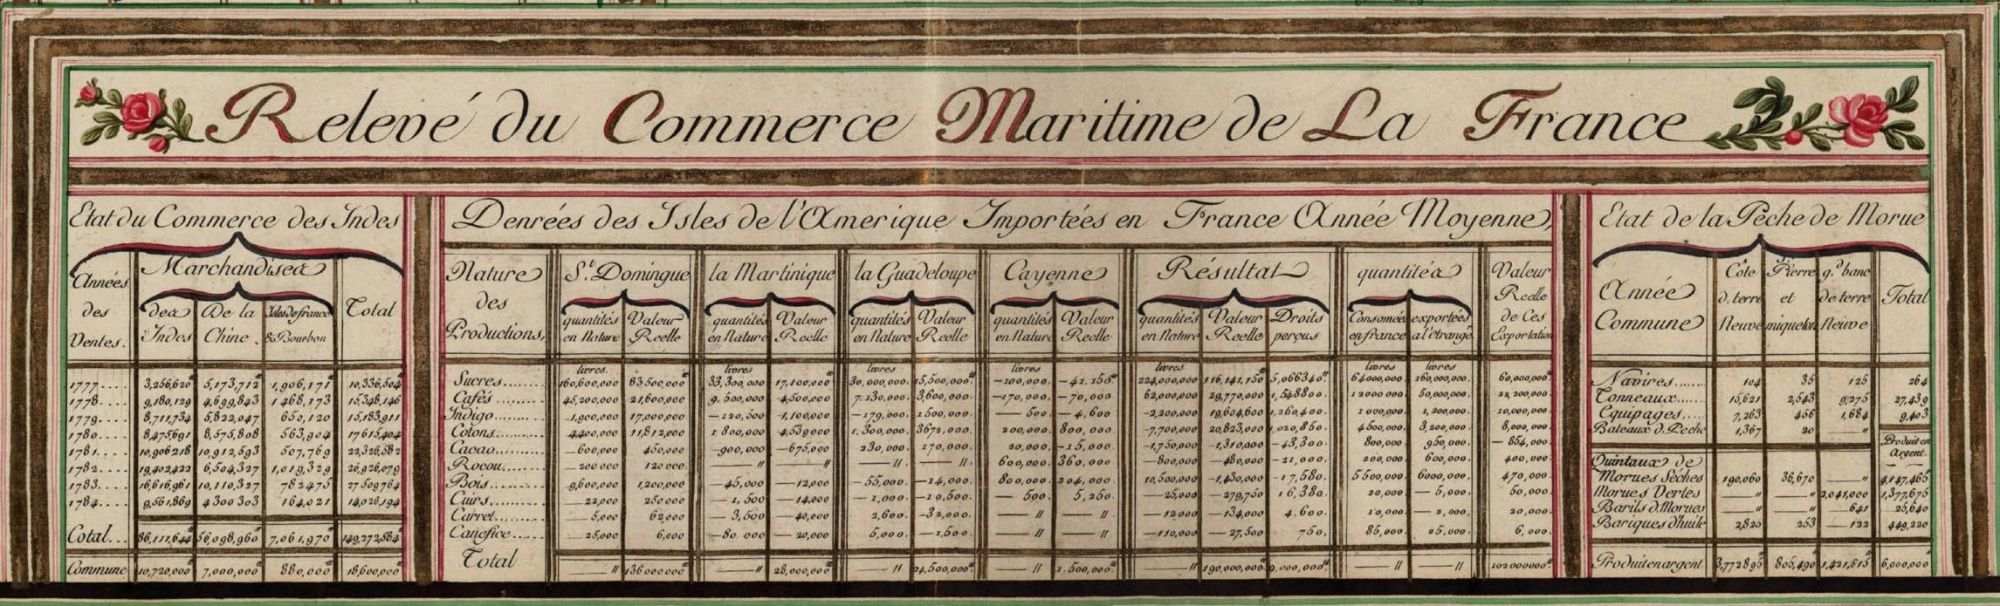 Relevé du Commerce Maritime de La France
Etat du Commerce des Indes
Années des Ventes.
Marchandises
des Indes
De la Chine
Isles de france & Bourbon
Total
1777.... 3,256,620 5,173,712 1,906,171 10,336,504
1778.... 9,180,129 4,699,843 1468,173 15,348,146
1779.... 8,711,734 5,822,047 650,120 15,183,911
1780.... 8,475,691 8,575,808 563,904 17615,404
1781.... 10,906218 10,912,593 507,769 22,326,582
1782.... 19,402422 6,504,327 1,019,329 26,926,079
1783.... 16,616,961 10,110,327 782475 27,509,764
1784.... 9,561,869 4300303 164021 14,026,194
Total... 86,111,644 56,098,960 7,061,970 149,272,584
Commune 10,720,000 7,000,000 880,000 18,600,000
Denrées des Isles de l'Amerique Importées en France Année Moyenne,
Nature des Productions,
St. Domingue
quantités en Nature
Valeur Reelle
la Martinique
quantités en Nature
Valeur Reelle
la Guadeloupe
quantités en Nature
Valeur Reelle
Cayenne
quantités en Nature
Valeur Reelle
Résultat
quantités en Nature
Valeur Reelle
Droits perçus
quantités
Consomées en france
exportées a l'etrangé
Valeur Reelle de Ces Exportation
livres. livres livres livres livres livres livres
Sucres........ 160,600,000 83,500,000 33,300,000 17,100,000 30,000,000 15,500,000 —100,000 —42,150 224,000,000 116,141,150 5,066340 64000,000 160,000,000 60,000,000
Cafés........ 45,200,000 21,600,000 9,500,000 4,500,000 7,130,000 3,600,000 —170,000 —70,000 62,000,000 29,770,000 1,548800 12000000 50,000,000 22,200,000
Indigo........ 1,900,000 17,000,000 —120,500 1,100,000 —179,000 1500,000 —500 —4,600 —2,200,000 19,604600 1,260,400 1000,000 1,200,000 10,000,000
Cotons........ 4,400,000 11,812,000 1800,000 4,539000 1,300,000 3672,000 200,000 800,000 —7,700,000 20,823,000 1,020,850 4500,000 3,200,000 8,000,000
Cacao........ —600,000 450,000 —900,000 —675,000 230,000 170,000 20,000 —15,000 —1,750,000 —1,310,000 —43,300 800,000 950,000 —854,000
Rocou........ —200000 120000 — " — " — " — " 600,000 360,000 —800,000 —480,000 —21,000 200,000 600,000 400,000
Bois........ 9,600,000 1,200,000 —45,000 —12,000 —55,000 —14,000 800,000 204,000 10,500,000 —1,430,000 —17,580 5500000 6000,000 470,000
Cuirs........ —22,000 250000 —1,500 —14,000 —1,000 —10,500 —500 5,250 —25,000 —279,750 16,380 20,000 —5,000 50,000
Carret........ —5,000 62,000 —3,500 —40,000 2,600 —32,000 — " — " —12000 —134,000 4,600 10,000 —2,000 20,000
Canefice........ —25,000 6,000 —80.000 —20,000 5,000 —1,500 — " — " —110,000 —27,500 750 85,000 25,000 6,000
Total — " 136000000 — " 28,000,000 — " 24,500,000 — " 1,500,000 — " 190,000,000 9,000,000 — " — " 102000000
Etat de la Pêche de Morue
Année Commune
Côte d. terre Neuve
St. Pierre et miquelon
gd. banc de terre Neuve
Total
Navires........ 104 35 125 264
Tonneaux........ 15,621 2,543 9,275 27,439
Equipages..... 7,263 456 1,684 9,403
Bateaux d. Peche 1,367 20 — "
Produit en Argent.
Quintaux de
Morues Sêches 190,060 36,670 — " 4,147,465
Morues Vertes — " — " 2,041,000 1,377,675
Barils d. Morues — " — " 641 25,640
Bariques d'huile 2,820 253 —122 449,220
Produit en argent 3,772895 805,490 1,421,615 6,000,000